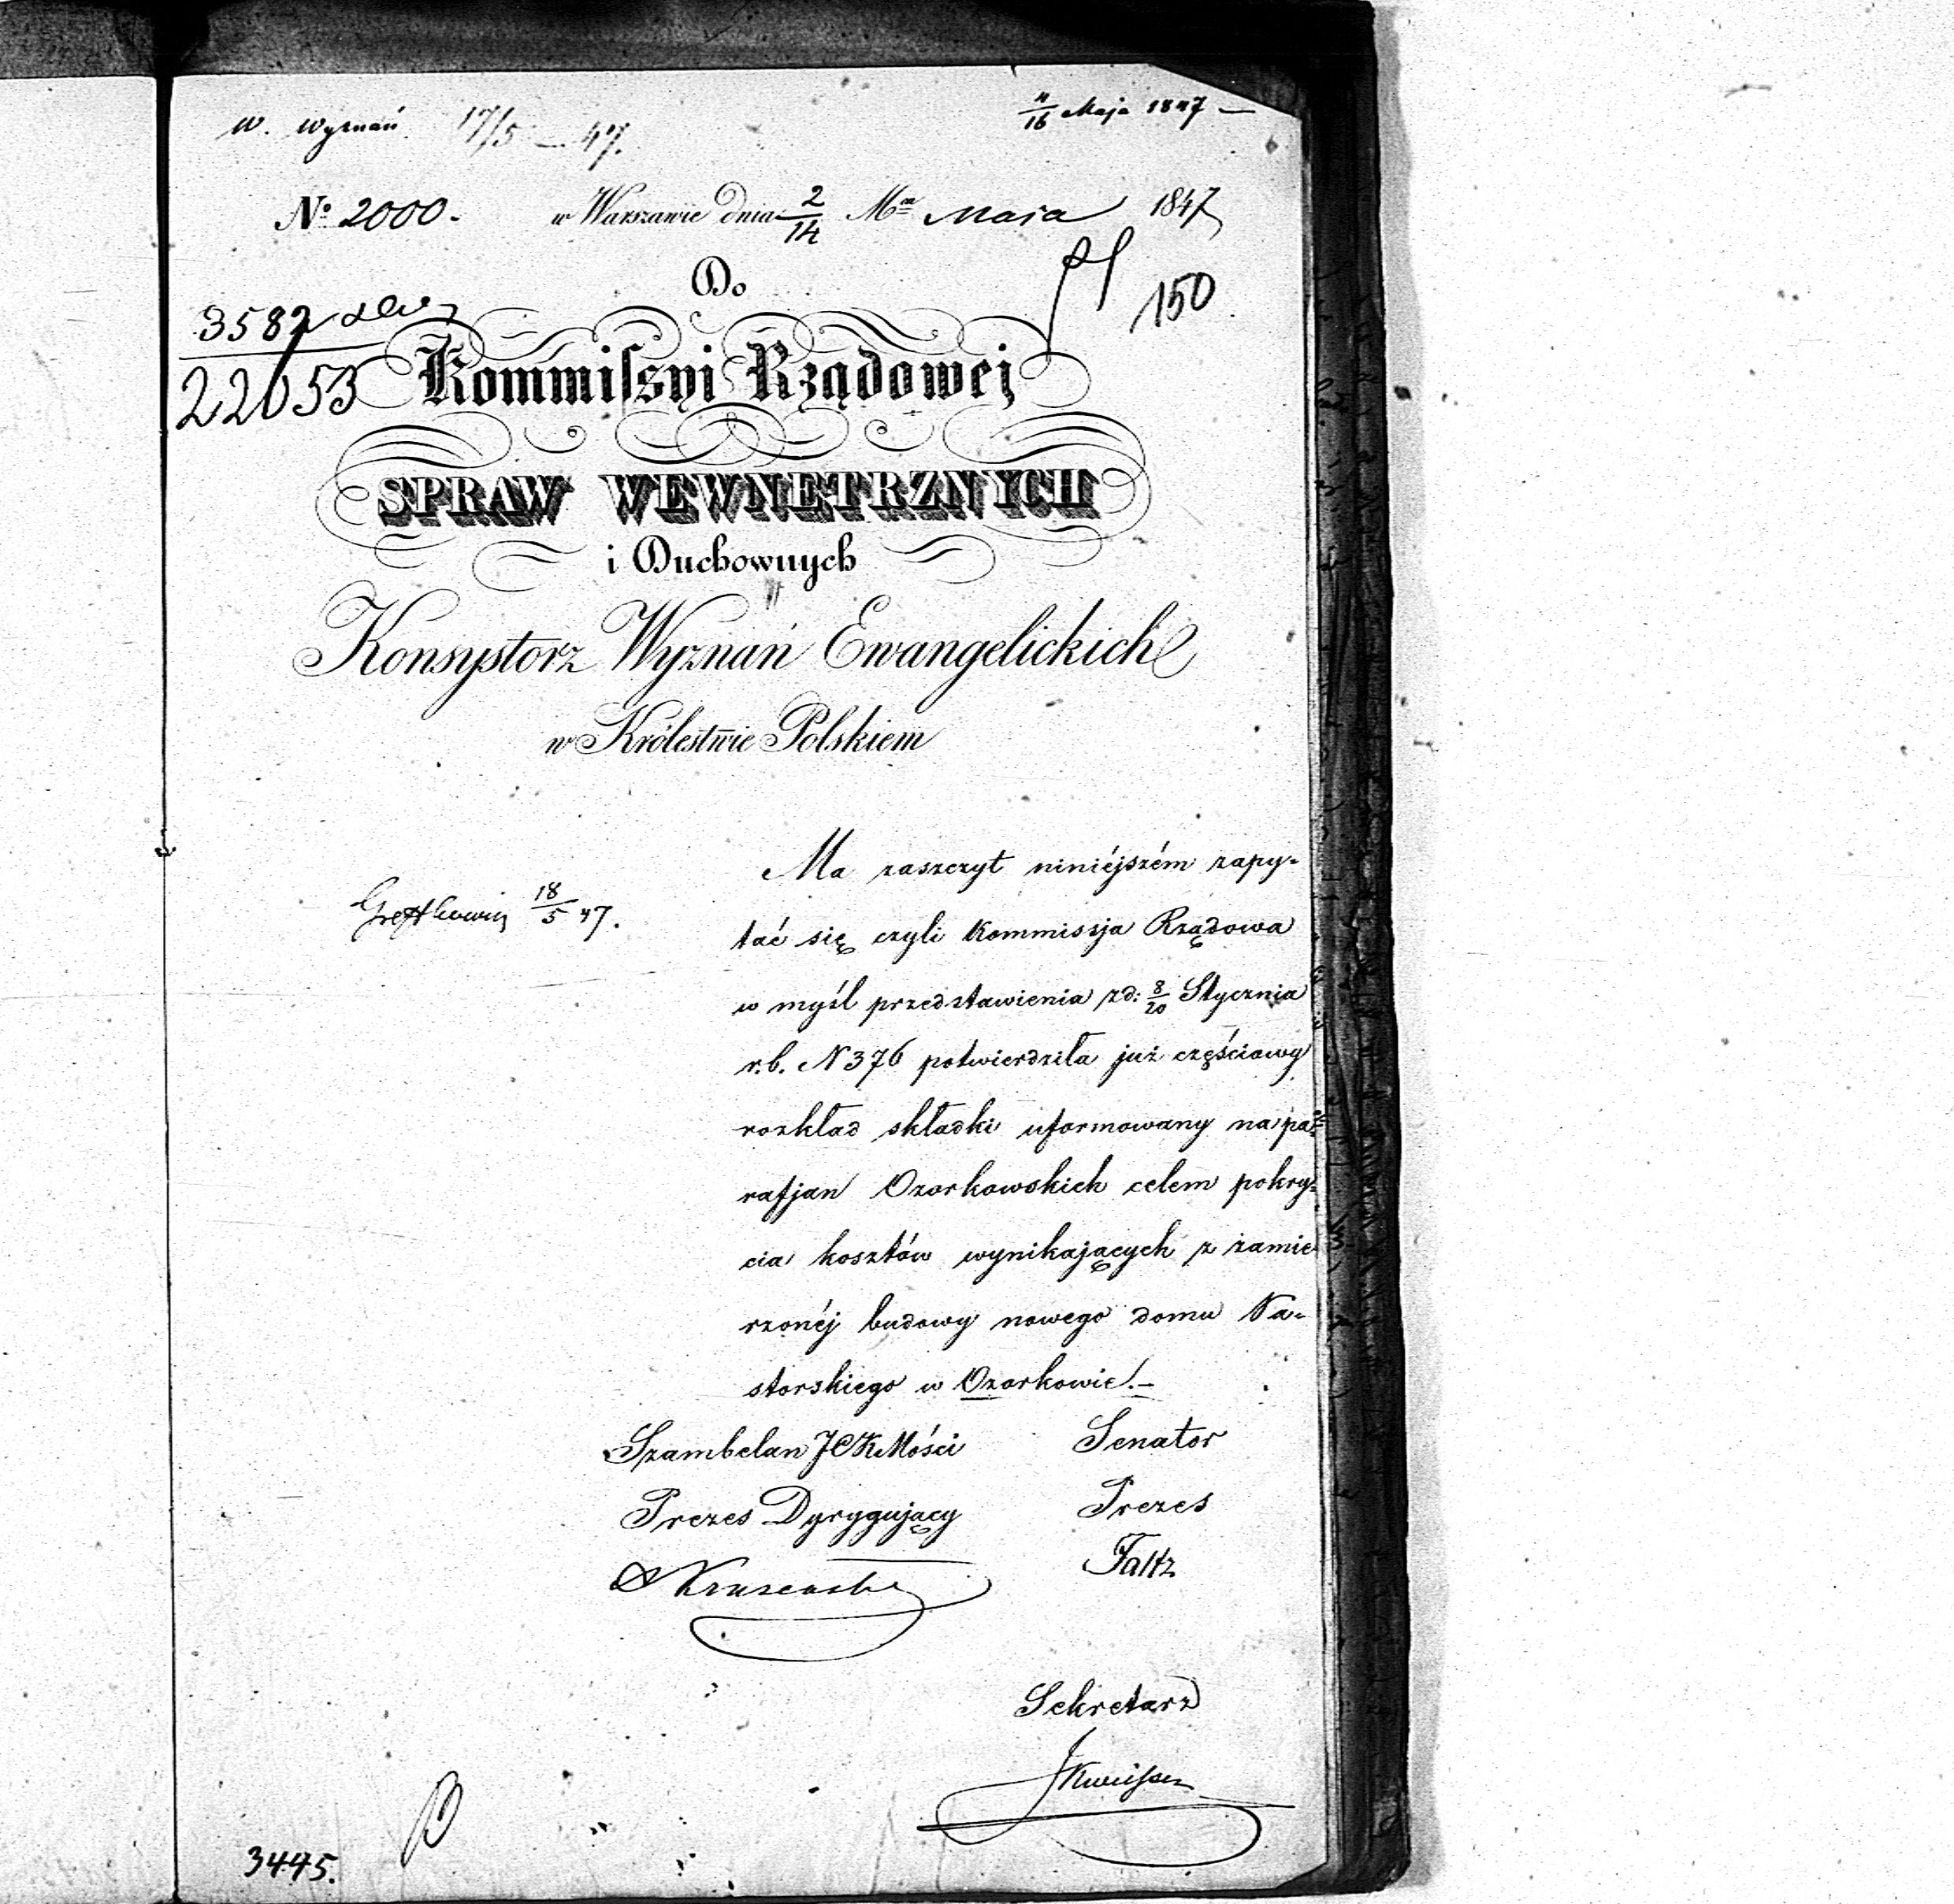 W. Wyznań 17/5 — 47.
4/16 Maja 1847 —
№ 2000. w Warszawie dnia 2/14 Mca Maja 1847
150
Do
3582
22053
Kommiſsyi Rządowej
SPRAW WEWNĘTRZNYCH
i Duchownych
Konsystorz Wyznań Ewangelickich
w Królestwie Polskiem
Ma zaszczyt niniéjszém zapy-
18/5 47.
tać się czyli Kommissja Rządowa
w myśl przedstawienia zd: 8/20 Stycznia
r.b. N 376 potwierdziła już częściowy
rozkład składki uformowany na pa-
rafjan Ozorkowskich celem pokry-
cia kosztów wynikających z zamie
rzonéj budowy nowego domu Pa-
storskiego w Ozorkowie.—
Szambelan JCKMości Senator
Prezes Dyrygujący Prezes
Faltz
Sekretarz
3445.